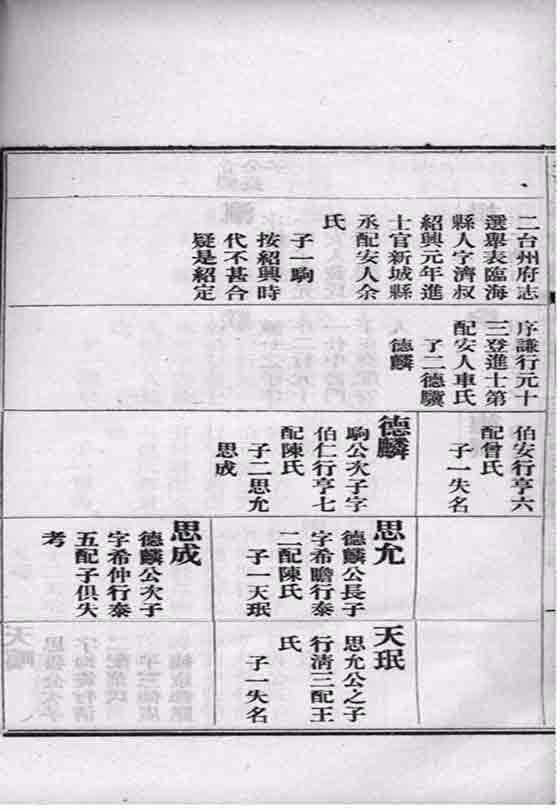 二台州府志
選舉表臨海
縣人字濟叔
紹興元年進
士官新城縣
丞配安人余
氏
子一駒
按紹興時
代不甚合
疑是紹定
序謙行元十
三登進士第
配安人車氏
了二德驥
德麟
伯安行亨六
配曾氏
子一失名
德麟
駒公次子字
伯仁行亨七
配陳氏
子二思允
思成
思允
德麟公長子
字希瞻行泰
二配陳氏
子一天珉
思成
德麟公次子
字希仲行泰
五配子俱失
考
天珉
思允公之子
行清三配王
氏
子一失名